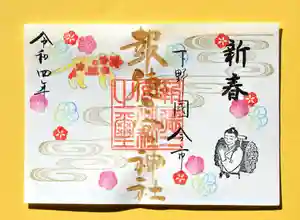 新春
下野國今市
報徳二宮神社
令和四年